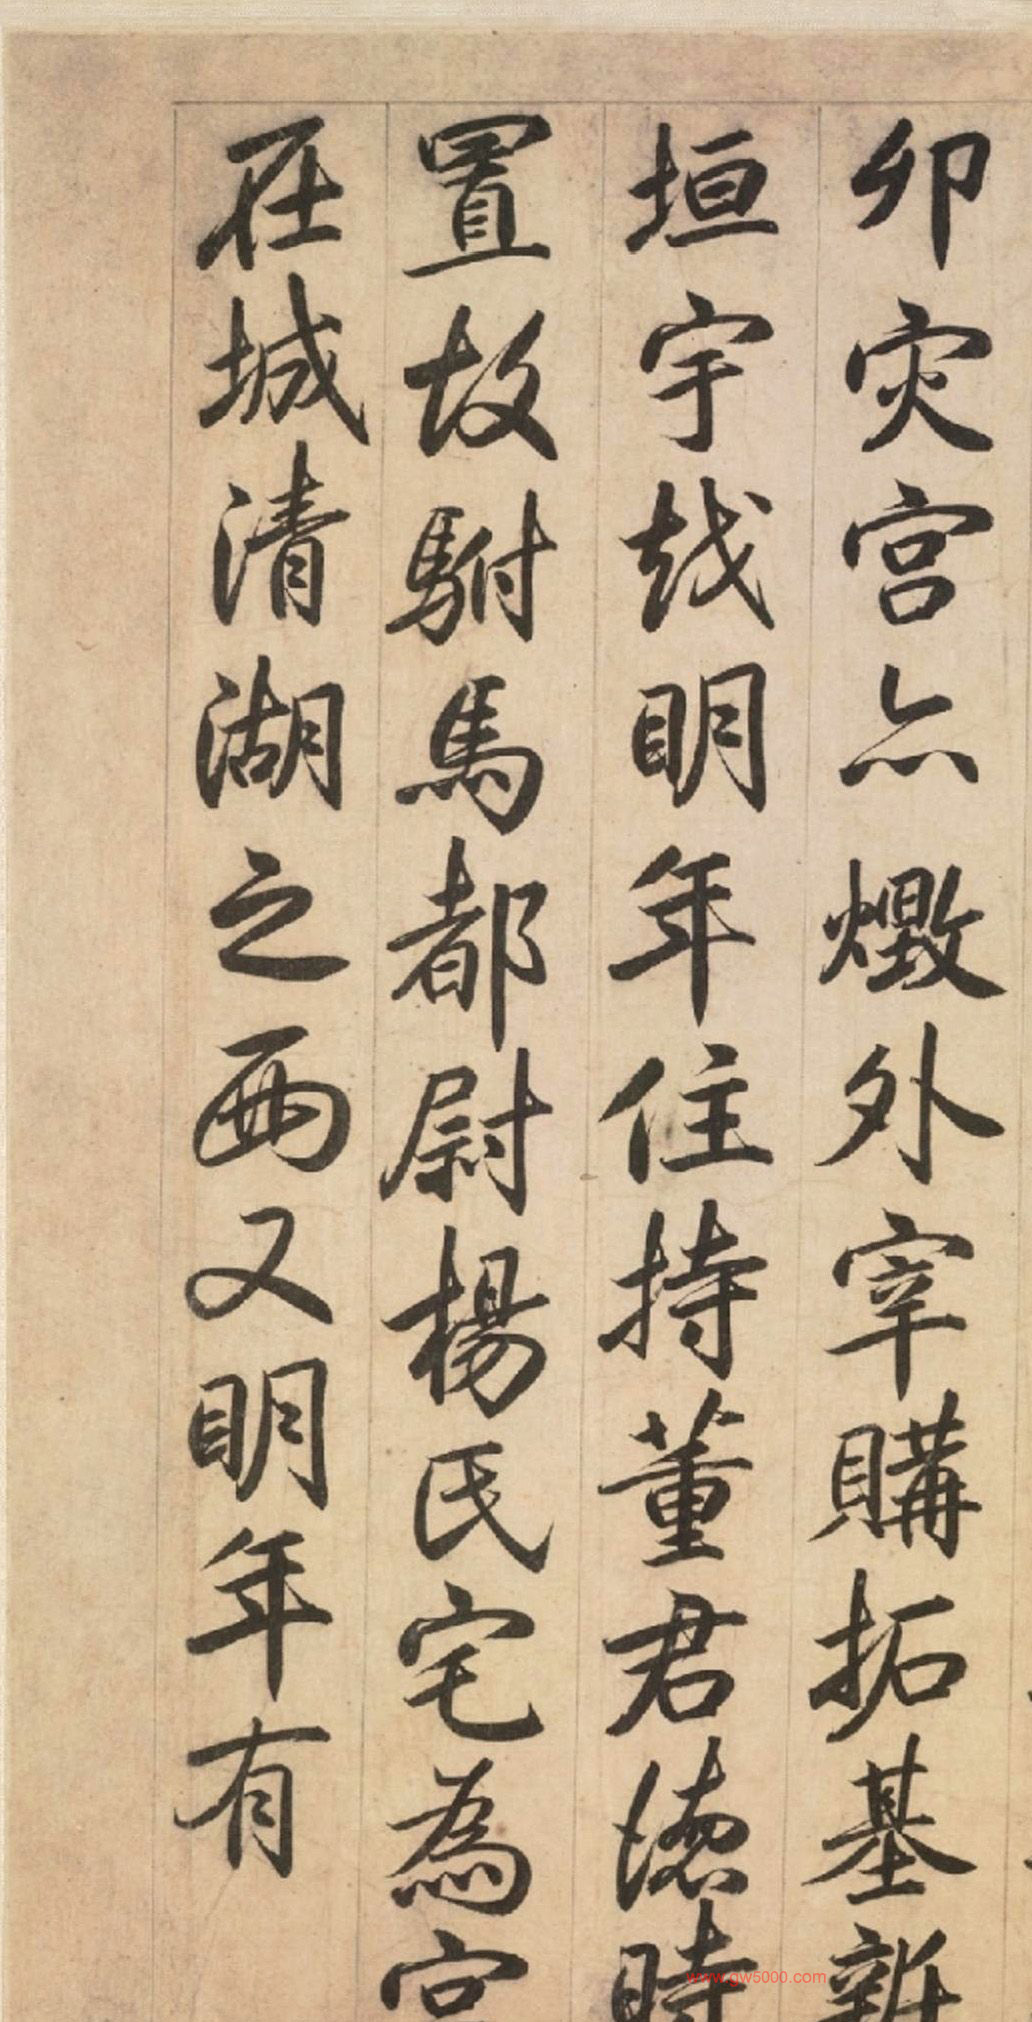 卯灾宫亦燬外宰購拓基新
垣宇越明年住持董君德時
置故駙馬都尉楊氏宅為宫
在城清湖之西又明年有
www.gw5000.com